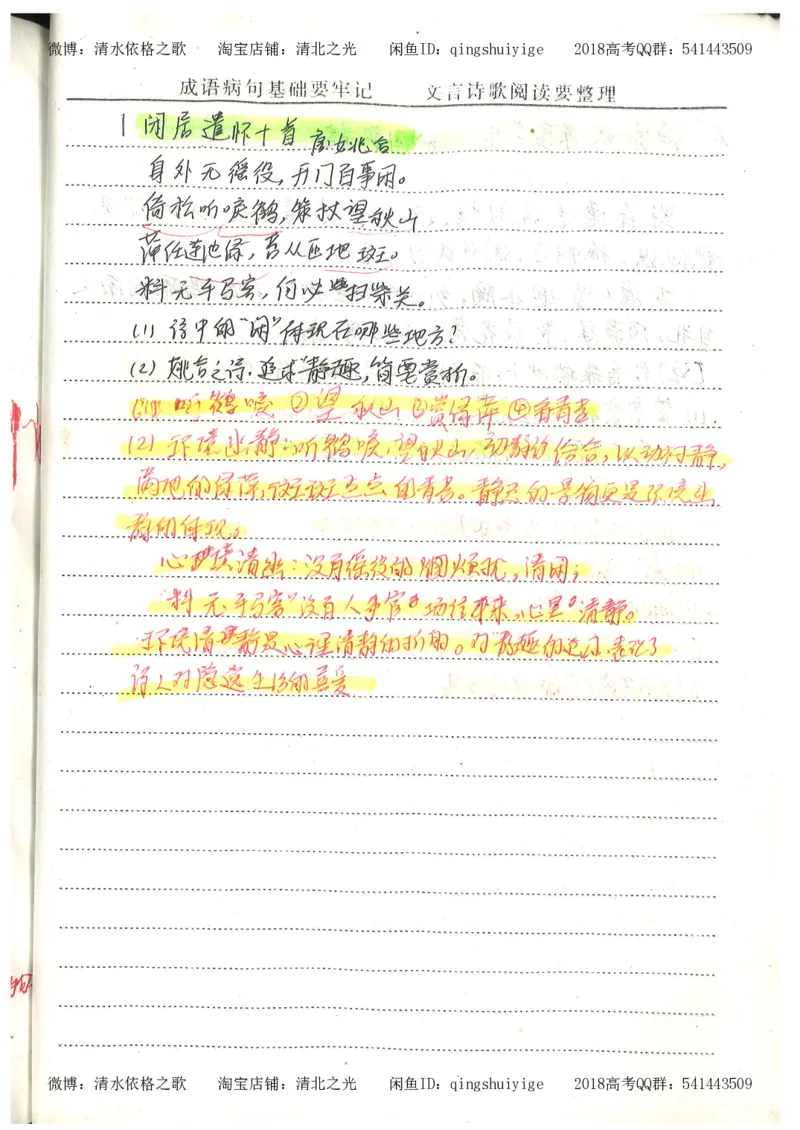 微博：清水依格之歌 淘宝店铺：清北之光 闲鱼ID：qingshuiyige 2018高考QQ群：541443509
成语病句基础要牢记 文言诗歌阅读要整理
1 闭居遣怀十首 姚合
身外无徭役，开门百事闲。
倚松听唳鹤，策杖望秋山
萍任连池绿，苔从匝地斑。
料无车马客，何必扫柴关。
(1) 诗中的“闲”体现在哪些地方？
(2) 姚合之诗，追求“静趣”，简要赏析。
(1) ①听鹤唳 ②望秋山 ③赏绿萍 ④看青苔
(2) 环境幽静：听鹤唳，望秋山，动静结合，以动衬静，
满池的绿萍，斑斑点点的青苔。静态的景物更是环境幽
静的体现。
心境清幽：没有徭役的烦扰，清闲；
“料无车马客”没有人事官场往来，心里清静。
环境清静是心理清静的折射。对静趣的追求表达了
诗人对隐逸生活的喜爱
微博：清水依格之歌 淘宝店铺：清北之光 闲鱼ID：qingshuiyige 2018高考QQ群：541443509